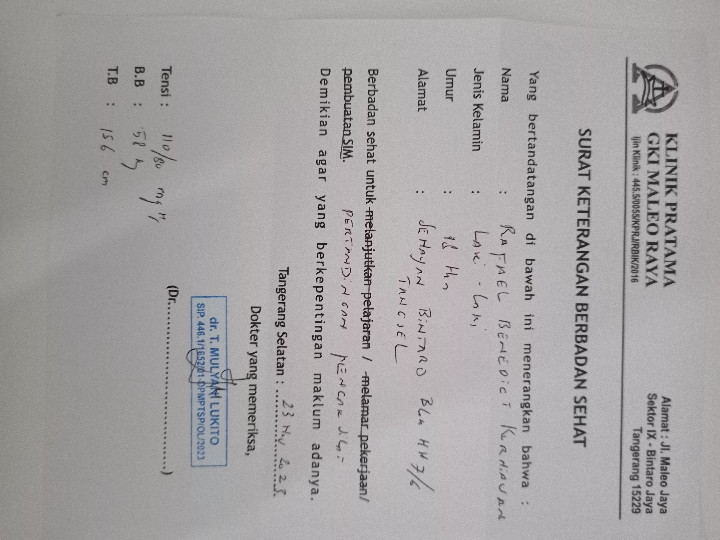 KLINIK PRATAMA
GKI MALEO RAYA
Ijin Klinik : 445.5/0055/KPRJ/RBIK/2016
Alamat : Jl. Maleo Jaya
Sektor IX - Bintaro Jaya
Tangerang 15229
SURAT KETERANGAN BERBADAN SEHAT
Yang bertandatangan di bawah ini menerangkan bahwa :
Nama : RAFAEL BENEDICT KURNIAWAN
Jenis Kelamin : Laki - Laki
Umur : 18
Alamat : BINTARO BLK HH7/6
TANGSEL
Berbadan sehat untuk melanjutkan pelajaran / melamar pekerjaan/
pembuatan SIM. PERTANDINGAN PENCAK
Demikian agar yang berkepentingan maklum adanya.
Tangerang Selatan : 23 2025
Dokter yang memeriksa,
dr. T. MULYANI LUKITO
SIP. 446.1/1652/01-DPMPTSP/OL/2023
(Dr.................................)
Tensi : 110/80
B.B : 58 kg
T.B : 156 cm